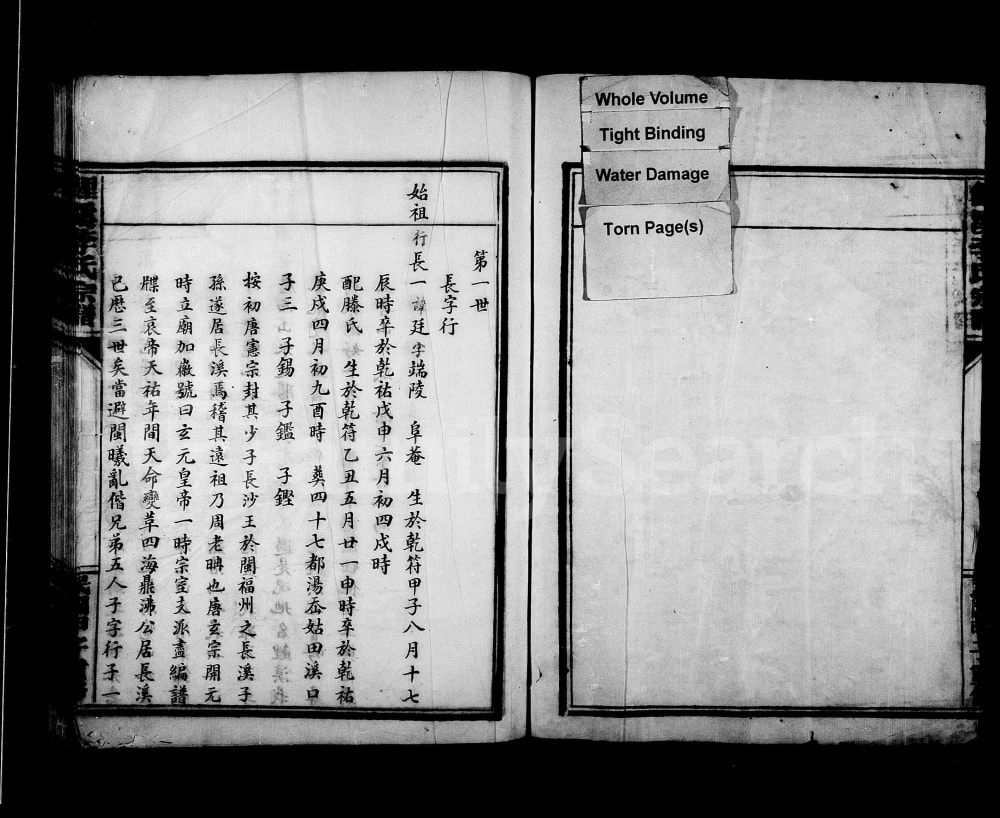 Whole Volume
Tight Binding
Water Damage
Torn Page(s)
第一世
長字行
始祖 行長一 諱廷 字端陵 阜菴 生於乾符甲子八月十七
辰時卒於乾祐戊申六月初四戌時
配滕氏 生於乾符乙丑五月廿一申時卒於乾祐
庚戌四月初九酉時 葬四十七都湯岙姑田溪口
子三 子錫 子鑑 子鏗
按初唐憲宗封其少子長沙王於閩福州之長溪子
孫遂居長溪焉稽其遠祖乃周老聃也唐玄宗開元
時立廟加徽號曰玄元皇帝一時宗室支派盡編譜
牒至哀帝天祐年間天命變革四海鼎沸公居長溪
已歷三世矣當避閩曦亂偕兄弟五人子字行子一